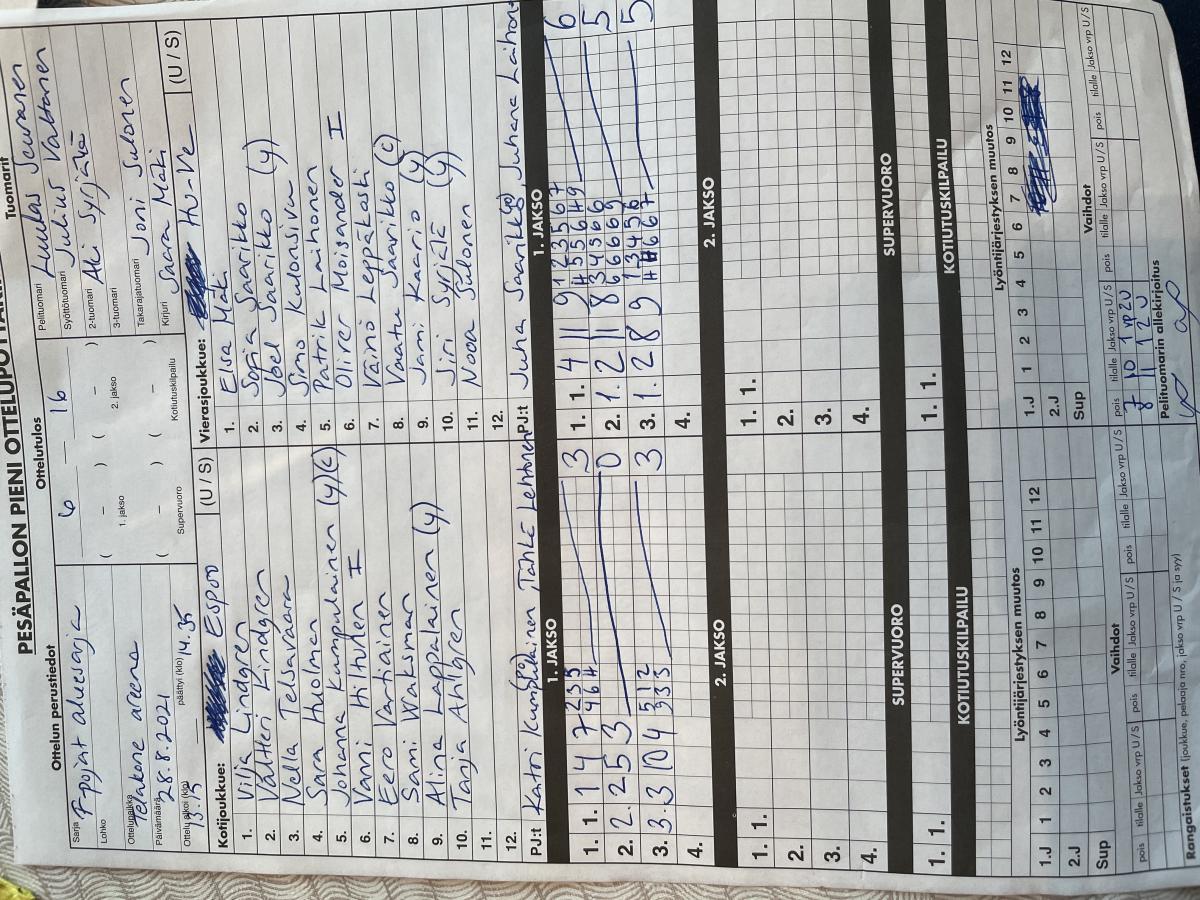 PESÄPALLON PIENI OTTELUPÖYTÄKIRJA
Ottelun perustiedot
Sarja F-pojat aluesarja
Lohko
Ottelupaikka Tetakone areena
Päivämäärä 28.8.2021
Ottelu alkoi (klo) päättyi (klo) 14.35
Ottelutulos
6 – 16
( – ) ( – )
1. jakso 2. jakso
( – ) ( – )
Supervuoro Kotiutuskilpailu
Tuomarit
Pelituomari Luukas Seuranen
Syöttötuomari Julius Valtanen
2-tuomari Aki Syrjälä
3-tuomari
Takarajatuomari Joni Sulonen
Kirjuri Saara Mäki
Kotijoukkue: Espoo (U / S)
1. Vilja Lindgren
2. Valtteri Lindgren
3. Nella Telsavaara
4. Sara Huolman
5. Johanna Kumpulainen (y)(c)
6. Vanni Hiltunen I
7. Eero Vartiainen
8. Sami Waksman
9. Alina Lappalainen (y)
10. Tarja Ahlgren
11.
12.
PJ:t Katri Kumpulainen, Tähke Lehtonen
Vierasjoukkue: Hu-Ve (U / S)
1. Elsa Mäki
2. Sonja Saarikko
3. Joel Saarikko (y)
4. Simo Kulonsivu
5. Patrik Laihonen
6. Oliver Moisander I
7. Väinö Leppäkoski
8. Vaatu Saarikko (c)
9. Jami Kaario (y)
10. Jiri Syrjälä (y)
11. Nooa Sulonen
12.
PJ:t Juha Saarikko, Juhana Laihonen
1. JAKSO
1. 1. 1 4 7 3
2. 2 5 3 0
3. 3 10 4 3
4.
2. JAKSO
1. 1.
2.
3.
4.
SUPERVUORO
1. 1.
KOTIUTUSKILPAILU
1. JAKSO
1. 1. 4 11 9 6
2. 1. 2 11 8 5
3. 1. 2 8 9 5
4.
2. JAKSO
1. 1.
2.
3.
4.
SUPERVUORO
1. 1.
KOTIUTUSKILPAILU
Lyöntijärjestyksen muutos
1.J 1 2 3 4 5 6 7 8 9 10 11 12
2.J
Sup
Vaihdot
pois tilalle Jakso vrp U / S pois tilalle Jakso vrp U / S pois tilalle Jakso vrp U / S
Lyöntijärjestyksen muutos
1.J 1 2 3 4 5 6 7 8 9 10 11 12
2.J
Sup
Vaihdot
pois tilalle Jakso vrp U / S pois tilalle Jakso vrp U / S pois tilalle Jakso vrp U / S
7 10 1 vp 2U
8 11 1 2 U
Rangaistukset (joukkue, pelaaja nro, jakso vrp U / S ja syy)
Pelituomarin allekirjoitus